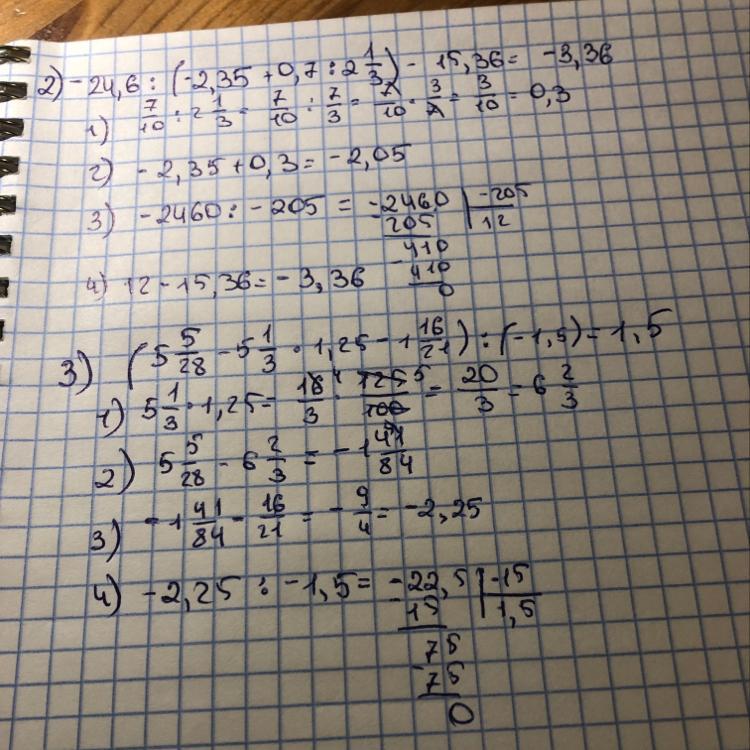 2) -24,6 : (-2,35 + 0,7 : 2 1/3) - 15,36 = -3,36
1) 7/10 : 2 1/3 = 7/10 : 7/3 = 7/10 · 3/7 = 3/10 = 0,3
2) -2,35 + 0,3 = -2,05
3) -2460 : -205 = -2460 | -205
205 | 12
-410
410
0
4) 12 - 15,36 = -3,36
3) (5 5/28 - 5 1/3 · 1,25 - 1 16/21) : (-1,5) = 1,5
1) 5 1/3 · 1,25 = 16/3 4 · 125/100 5 = 20/3 = 6 2/3
2) 5 5/28 - 6 2/3 = -1 41/84
3) -1 41/84 - 16/21 = -9/4 = -2,25
4) -2,25 : -1,5 = -22,5 | -15
15 | 1,5
75
-75
0